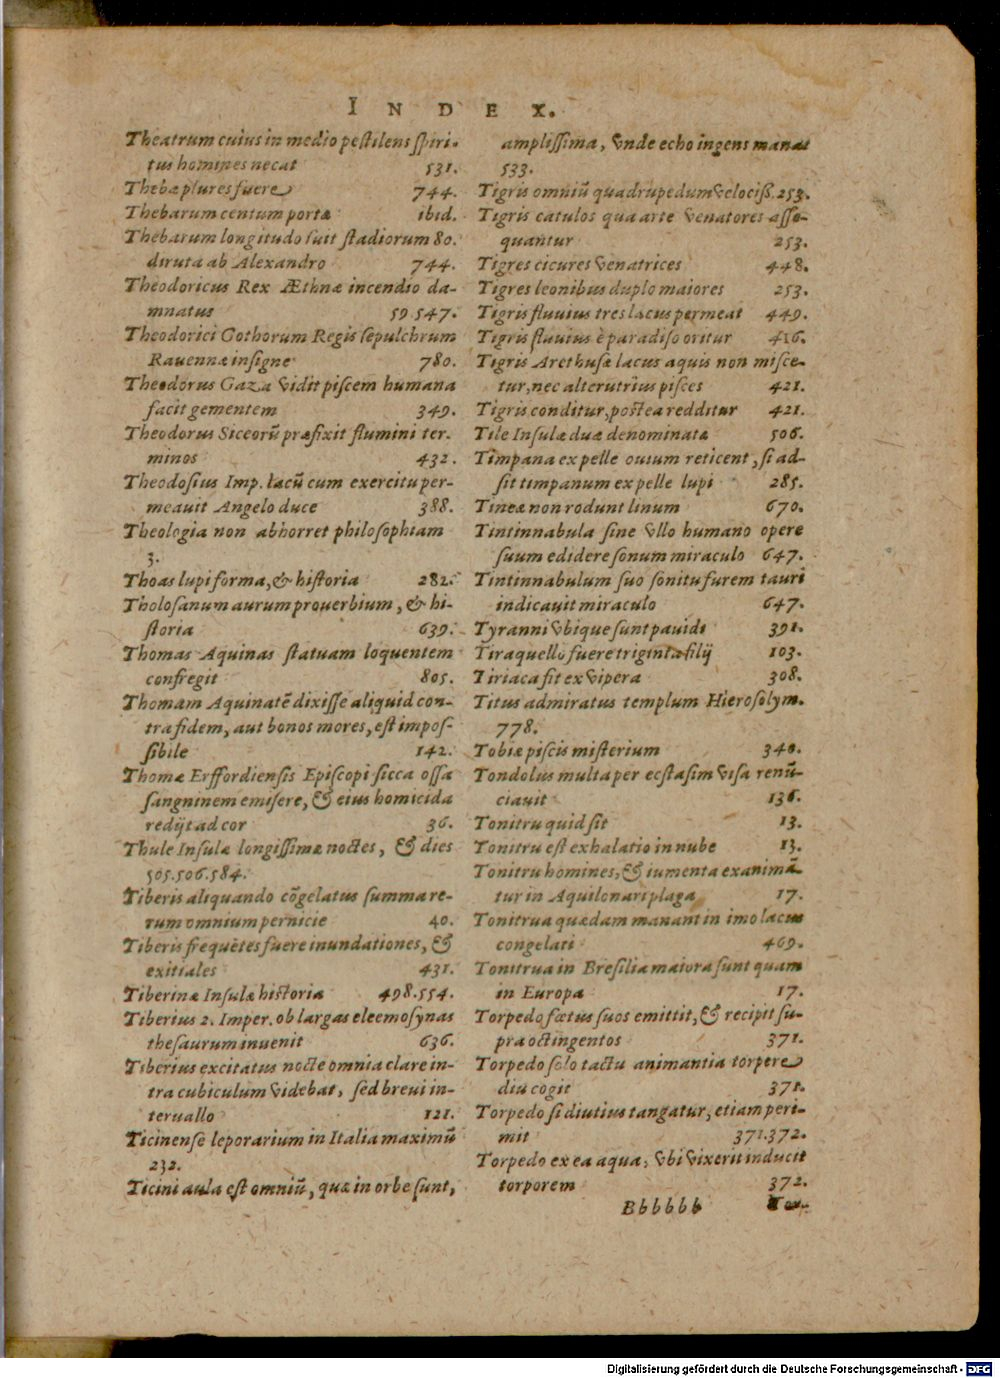 INDEX.
Theatrum cuius in medio pestilens spiri-
tus homines necat 531.
Thebæ plures fuere 744.
Thebarum centum portæ ibid.
Thebarum longitudo fuit stadiorum 80.
diruta ab Alexandro 744.
Theodoricus Rex Æthnæ incendio da-
mnatus 59.547.
Theodorici Gothorum Regis sepulchrum
Rauennæ insigne 780.
Theodorus Gaza vidit piscem humana
facie gementem 349.
Theodorus Siceorũ præfixit flumini ter-
minos 432.
Theodosius Imp. lacũ cum exercitu per-
meauit Angelo duce 388.
Theologia non abhorret philosophiam
3.
Thoas lupi forma, & historia 282.
Tholosanum aurum prouerbium, & hi-
storia 639.
Thomas Aquinas statuam loquentem
confregit 805.
Thomam Aquinatẽ dixisse aliquid con-
tra fidem, aut bonos mores, est impos-
sibile 142.
Thomæ Erffordiensis Episcopi sicca ossa
sangninem emisere, & eius homicida
redijt ad cor 36.
Thule Insulæ longissimæ noctes, & dies
505.506.584.
Tiberis aliquando cõgelatus summa re-
rum omnium pernicie 40.
Tiberis frequẽtes fuere inundationes, &
exitiales 431.
Tiberinæ Insulæ historia 498.554.
Tiberius 2. Imper. ob largas eleemosynas
thesaurum inuenit 636.
Tiberius excitatus nocte omnia clare in-
tra cubiculum videbat, sed breui in-
teruallo 121.
Ticinense leporarium in Italia maximũ
232.
Ticini aula est omniũ, quæ in orbe sunt,
amplissima, vnde echo ingens manat
533.
Tigris omniũ quadrupedum velociß. 253.
Tigris catulos qua arte venatores asse-
quantur 253.
Tigres cicures venatrices 448.
Tigres leonibus duplo maiores 253.
Tigris fluuius tres lacus permeat 449.
Tigris fluuius è paradiso oritur 416.
Tigris Arethusæ lacus aquis non misce-
tur, nec alterutrius pisces 421.
Tigris conditur, postea redditur 421.
Tile Insulæ duæ denominatæ 506.
Timpana ex pelle ouium reticent, si ad-
sit timpanum ex pelle lupi 285.
Tineæ non rodunt linum 670.
Tintinnabula sine vllo humano opere
suum edidere sonum miraculo 647.
Tintinnabulum suo sonitu furem tauri
indicauit miraculo 647.
Tyranni vbique sunt pauidi 391.
Tiraquello fuere triginta filij 103.
Tiriaca fit ex vipera 308.
Titus admiratus templum Hierosolym.
778.
Tobiæ piscis misterium 340.
Tondolus multa per ecstasim visa renũ-
ciauit 136.
Tonitru quid sit 13.
Tonitru est exhalatio in nube 13.
Tonitru homines, & iumenta exanimã-
tur in Aquilonari plaga 17.
Tonitrua quædam manant in imo lacus
congelati 469.
Tonitrua in Bresilia maiora sunt quam
in Europa 17.
Torpedo fœtus suos emittit, & recipit su-
pra octingentos 371.
Torpedo solo tactu animantia torpere
diu cogit 371.
Torpedo si diutius tangatur, etiam peri-
mit 371.372.
Torpedo ex ea aqua, vbi vixerit inducit
torporem 372.
Bbbbbb Tor-
Digitalisierung gefördert durch die Deutsche Forschungsgemeinschaft - DFG